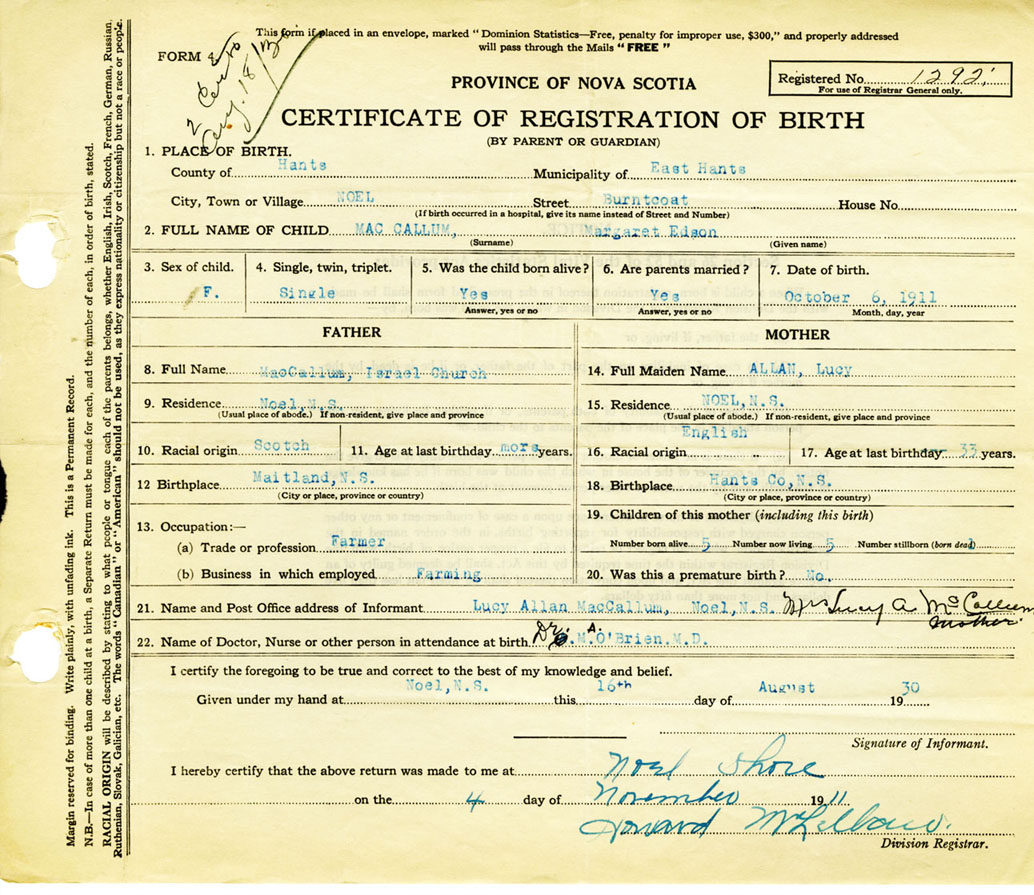 This form if placed in an envelope, marked "Dominion Statistics—Free, penalty for improper use, $300," and properly addressed
will pass through the Mails "FREE"
FORM 8
2 Certs
Aug. 18/13
PROVINCE OF NOVA SCOTIA
Registered No. 1292
For use of Registrar General only.
CERTIFICATE OF REGISTRATION OF BIRTH
(BY PARENT OR GUARDIAN)
1. PLACE OF BIRTH.
County of Hants Municipality of East Hants
City, Town or Village NOEL Street Burntcoat House No.
(If birth occurred in a hospital, give its name instead of Street and Number)
2. FULL NAME OF CHILD MAC CALLUM, Margaret Edson
(Surname) (Given name)
3. Sex of child. 4. Single, twin, triplet. 5. Was the child born alive? 6. Are parents married? 7. Date of birth.
F. Single Yes Yes October 6, 1911
Answer, yes or no Answer, yes or no Month, day, year
FATHER MOTHER
8. Full Name MacCallum, Israel Church 14. Full Maiden Name ALLAN, Lucy
9. Residence Noel, N.S. 15. Residence NOEL, N.S.
(Usual place of abode.) If non-resident, give place and province (Usual place of abode.) If non-resident, give place and province
10. Racial origin Scotch 11. Age at last birthday mors years. 16. Racial origin English 17. Age at last birthday 33 years.
12 Birthplace Maitland, N.S. 18. Birthplace Hants Co, N.S.
(City or place, province or country) (City or place, province or country)
13. Occupation:— 19. Children of this mother (including this birth)
(a) Trade or profession Farmer Number born alive 5 Number now living 5 Number stillborn (born dead)
(b) Business in which employed Farming 20. Was this a premature birth? No.
21. Name and Post Office address of Informant Lucy Allan MacCallum, Noel, N.S. Mrs Lucy A. McCallum
mother.
22. Name of Doctor, Nurse or other person in attendance at birth Dr. M. A. O'Brien. M.D.
I certify the foregoing to be true and correct to the best of my knowledge and belief.
Given under my hand at Noel, N.S. this 16th day of August 1930
Signature of Informant.
I hereby certify that the above return was made to me at Noel Shore
on the 4 day of November 1911
Howard
Division Registrar.
Margin reserved for binding. Write plainly, with unfading ink. This is a Permanent Record.
N.B.—In case of more than one child at a birth, a Separate Return must be made for each, and the number of each, in order of birth, stated.
RACIAL ORIGIN will be described by stating to what people or tongue each of the parents belongs, whether English, Irish, Scotch, French, German, Russian,
Ruthenian, Slovak, Galician, etc. The words "Canadian" or "American" should not be used, as they express nationality or citizenship but not a race or people.